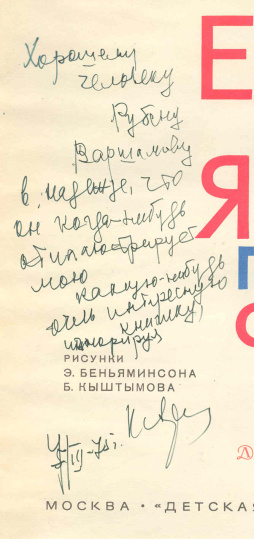 Хорошему
человеку
Рубену
Варшамову
в надежде, что
он когда-нибудь
отиллюстрирует
мою
какую-нибудь
очень интересную
книжку,
Е
Я
РИСУНКИ
Э. БЕНЬЯМИНСОНА
Б. КЫШТЫМОВА
МОСКВА · «ДЕТСКАЯ